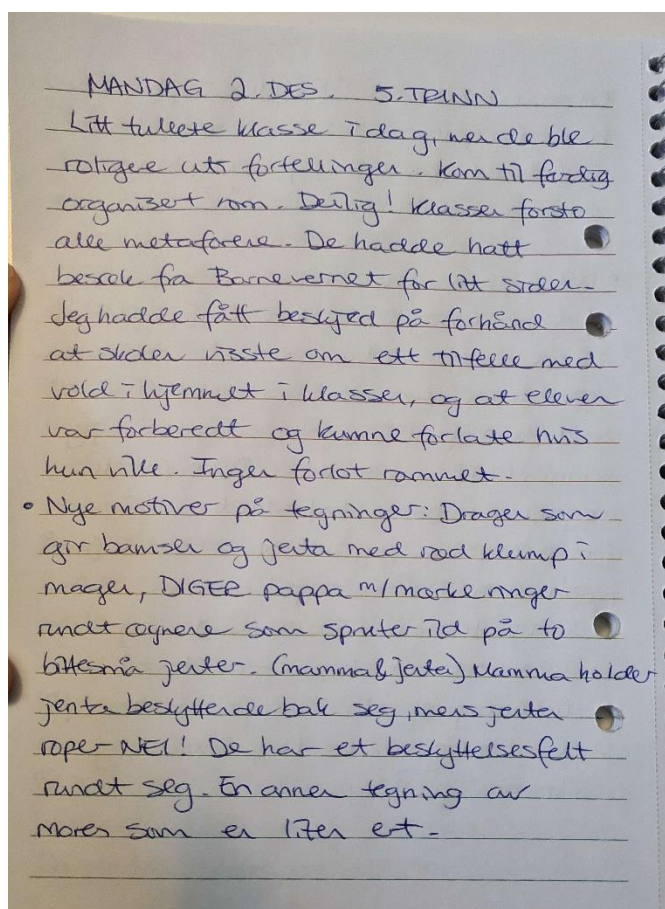 MANDAG 2. DES. 5. TRINN
Litt tullete klasse i dag, men de ble
roligere utr fortellingen. Kom til ferdig
organisert rom. Deilig! Klassen forsto
alle metaforene. De hadde hatt
besøk fra Barnevernet for litt siden.
Jeg hadde fått beskjed på forhånd
at skolen visste om ett tilfelle med
vold i hjemmet i klassen, og at eleven
var forberedt og kunne forlate hvis
hun ville. Ingen forlot rommet.
• Nye motiver på tegninger: Drager som
gir bamser og jenta med rød klump i
magen, DIGER pappa m/mørke ringer
rundt øynene som spruter ild på to
bittesmå jenter. (mamma & jenta) Mamma holder
jenta beskyttende bak seg, mens jenta
roper NEI! De har et beskyttelsesfelt
rundt seg. En annen tegning av
moren som er liten ert.